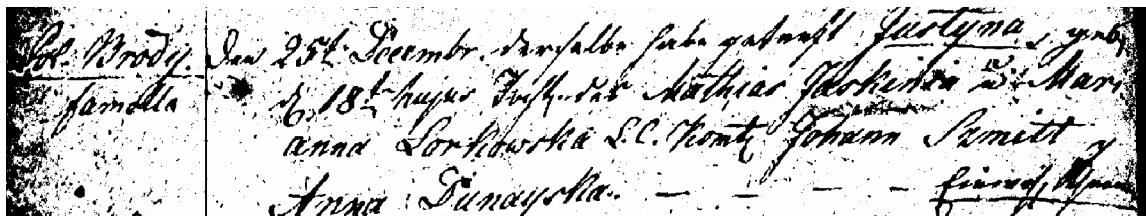 Pol. Brody. den 25t. Decembr. derselbe habe getauft Justyna, geb.
famella d. 18t. hujus Tocht. des Mathias Jaskinia u. Mari
anna Lorkowska L. C. Johann Szmitt
Anna Dunayska. — — — —